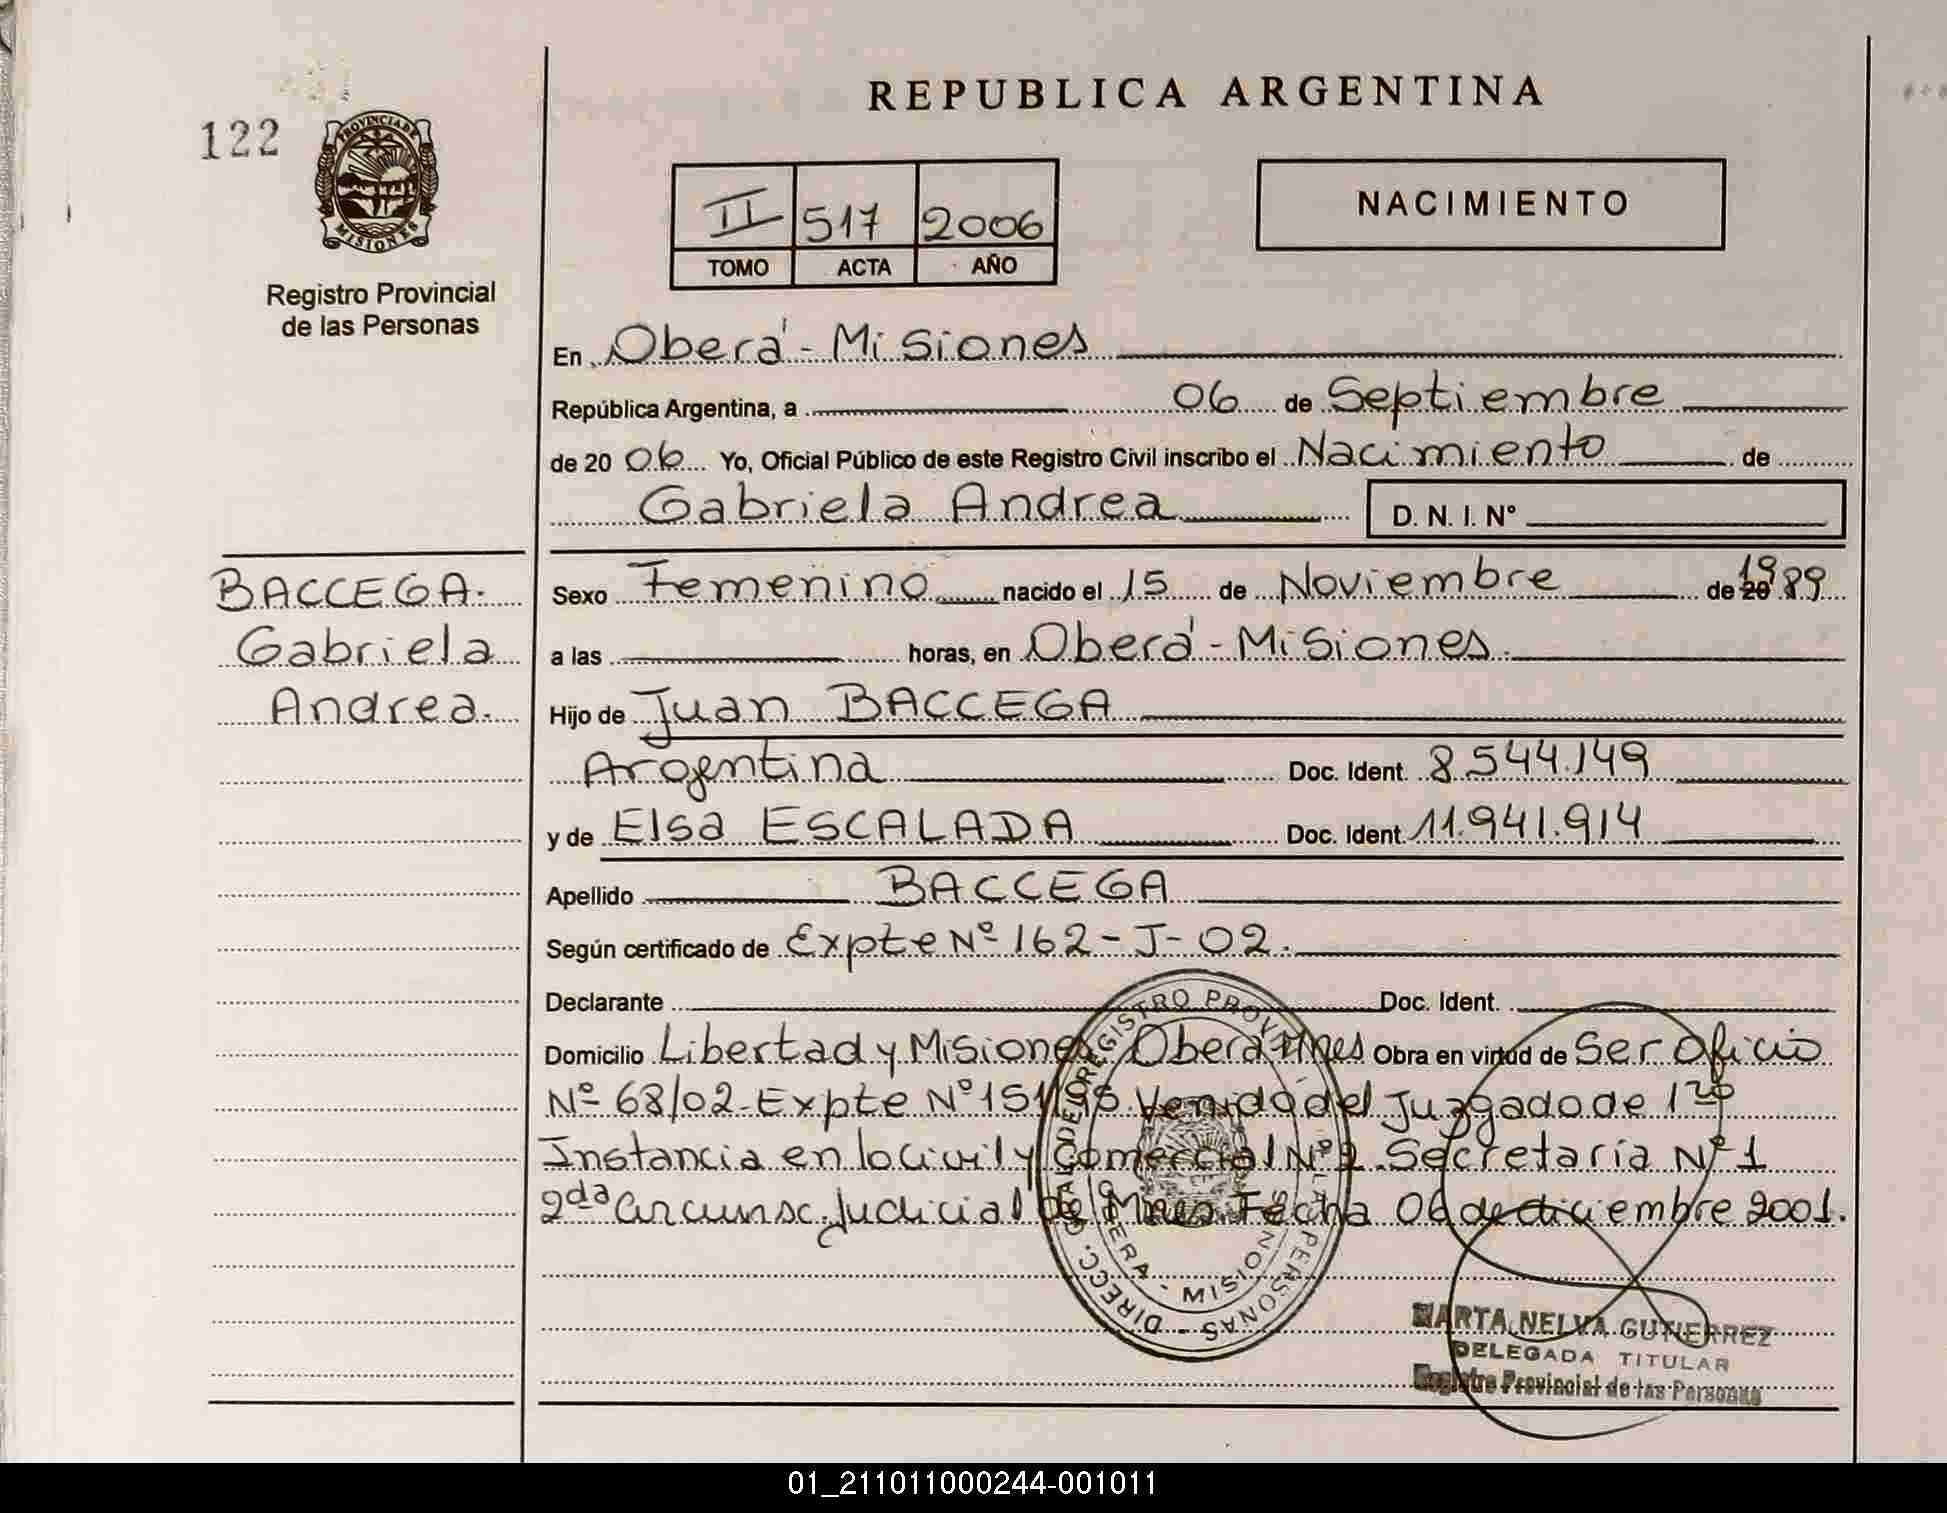 REPUBLICA ARGENTINA
122
PROVINCIA DE
MISIONES
Registro Provincial
de las Personas
II 517 2006
TOMO ACTA AÑO
NACIMIENTO
En Oberá - Misiones
República Argentina, a 06 de Septiembre
de 20 06 Yo, Oficial Público de este Registro Civil inscribo el Nacimiento de
Gabriela Andrea D. N. I. N°
BACCEGA.
Gabriela
Andrea.
Sexo Femenino nacido el 15 de Noviembre de 20 19 89
a las horas, en Oberá - Misiones.
Hijo de Juan BACCEGA
Argentina Doc. Ident. 8.544.149
y de Elsa ESCALADA Doc. Ident. 11.941.914
Apellido BACCEGA
Según certificado de Expte Nº 162 - J - 02.
Declarante Doc. Ident.
Domicilio Libertad y Misiones Oberá Mnes Obra en virtud de Ser Oficio
Nº 68/02 - Expte Nº 151/95 Venido del Juzgado de 1ra
Instancia en lo Civil y Comercial Nº 2 Secretaría Nº 1
2da Circunsc. Judicial de Mnes Fecha 06 de diciembre 2001.
DIRECC. GRAL DEL REGISTRO PROV. DE LAS PERSONAS -
OBERA - MISIONES
MARTA NELVA GUTIERREZ
DELEGADA TITULAR
Registro Provincial de las Personas
01_211011000244-001011